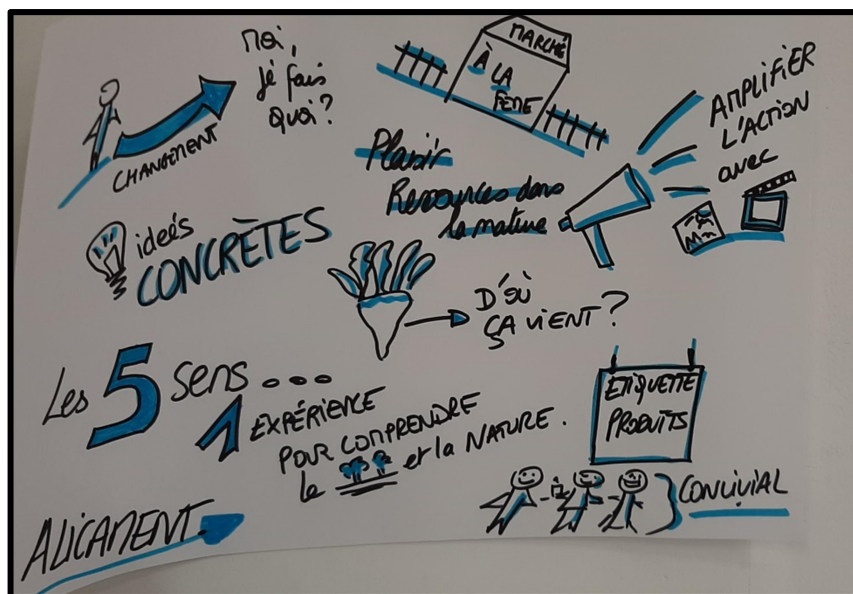 Moi,
je fais
quoi?
CHANGEMENT
MARCHÉ
À LA
FERME
AMPLIFIER
L'ACTION
avec
Plaisir
Ressources dans
la nature
ideés
CONCRÈTES
D'OÙ
ÇA VIENT?
Les 5 sens...
1 EXPÉRIENCE
POUR COMPRENDRE
le et la NATURE.
ÉTIQUETTE
PRODUITS
CONVIVIAL
ALIGNEMENT